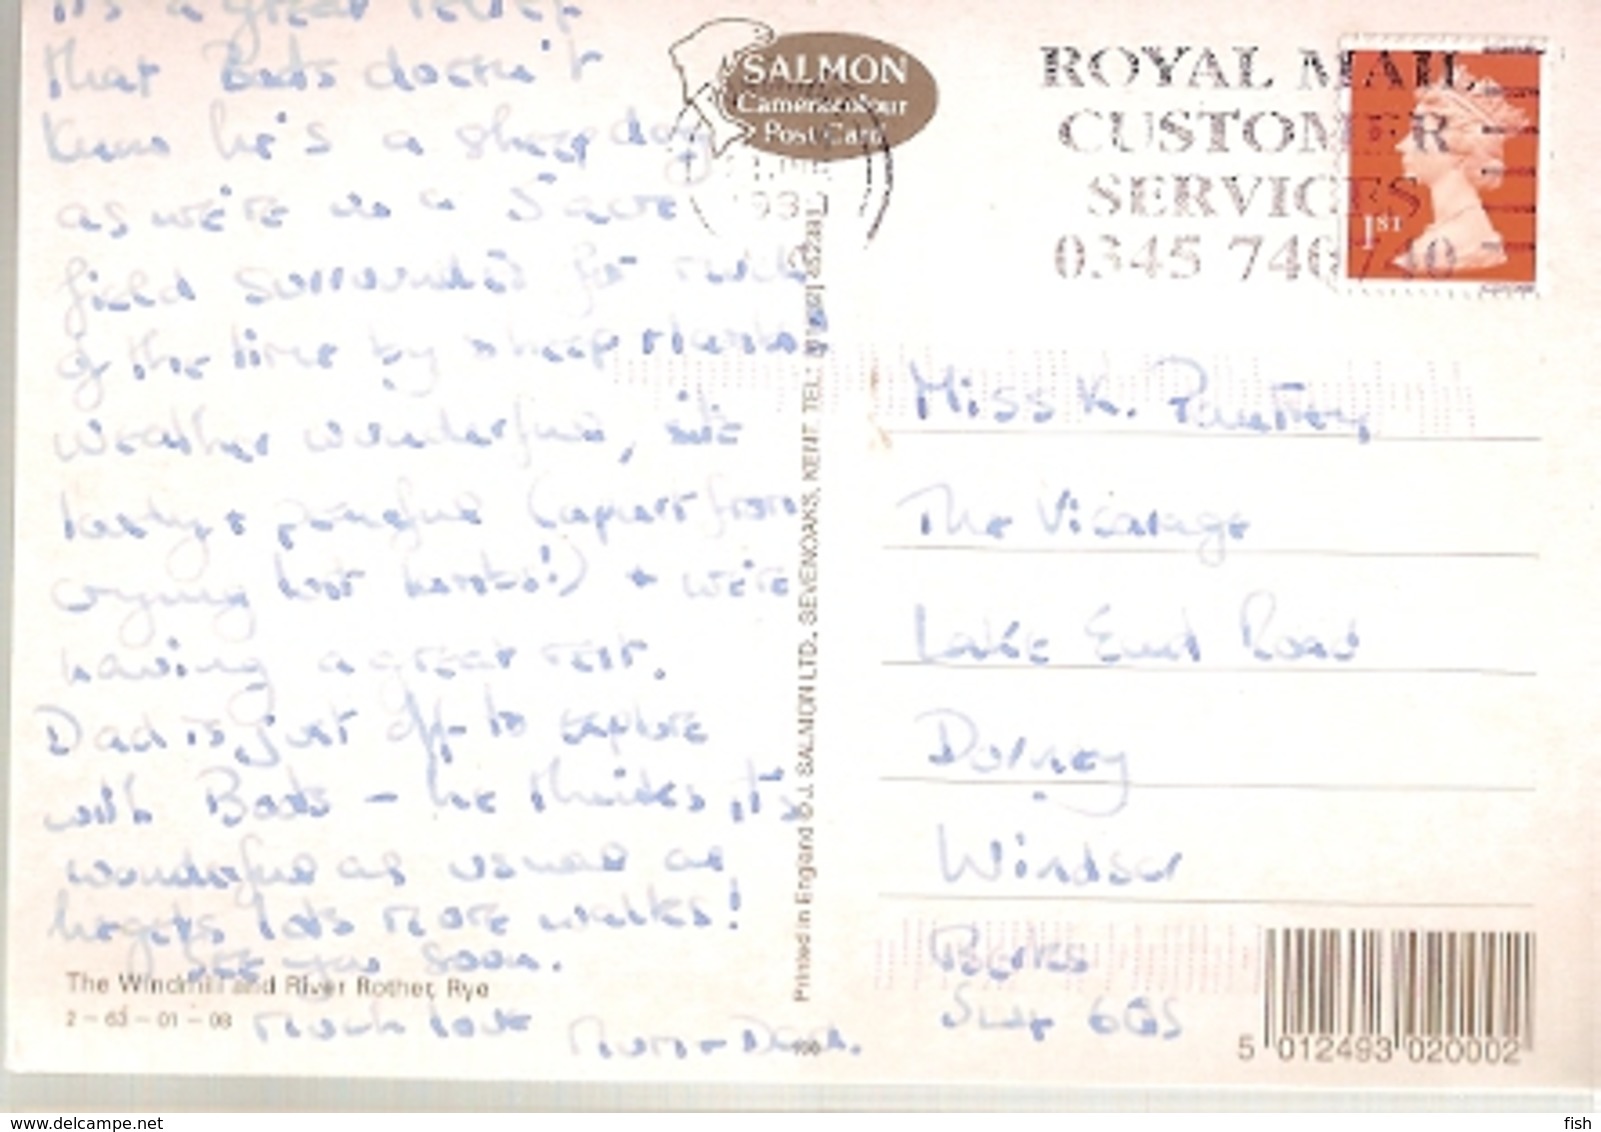 It's a great relief
that Boots doesn't
know he's a sheep dog
as we're in a 5 acre
field surrounded for
of the time by sheep
Weather wonderful, site
lovely & peaceful (apart from
crying lost lambs!) & we're
having a great rest.
Dad is just off to explore
with Boots - he thinks it's
wonderful as usual as
he gets lots more walks!
See you soon.
much love Mum & Dad.
The Windmill and River Rother, Rye
2-63-01-08
SALMON
Cameracolour
Post Card
Printed in England © J. SALMON LTD., SEVENOAKS, KENT. TEL:
ROYAL MAIL
CUSTOMER
SERVICES
0345 740740
1ST
Miss K.
The Vicarage
Lake End Road
Dorney
Windsor
Berks
SL4 6QS
5 012493 020002
www.delcampe.net
fish